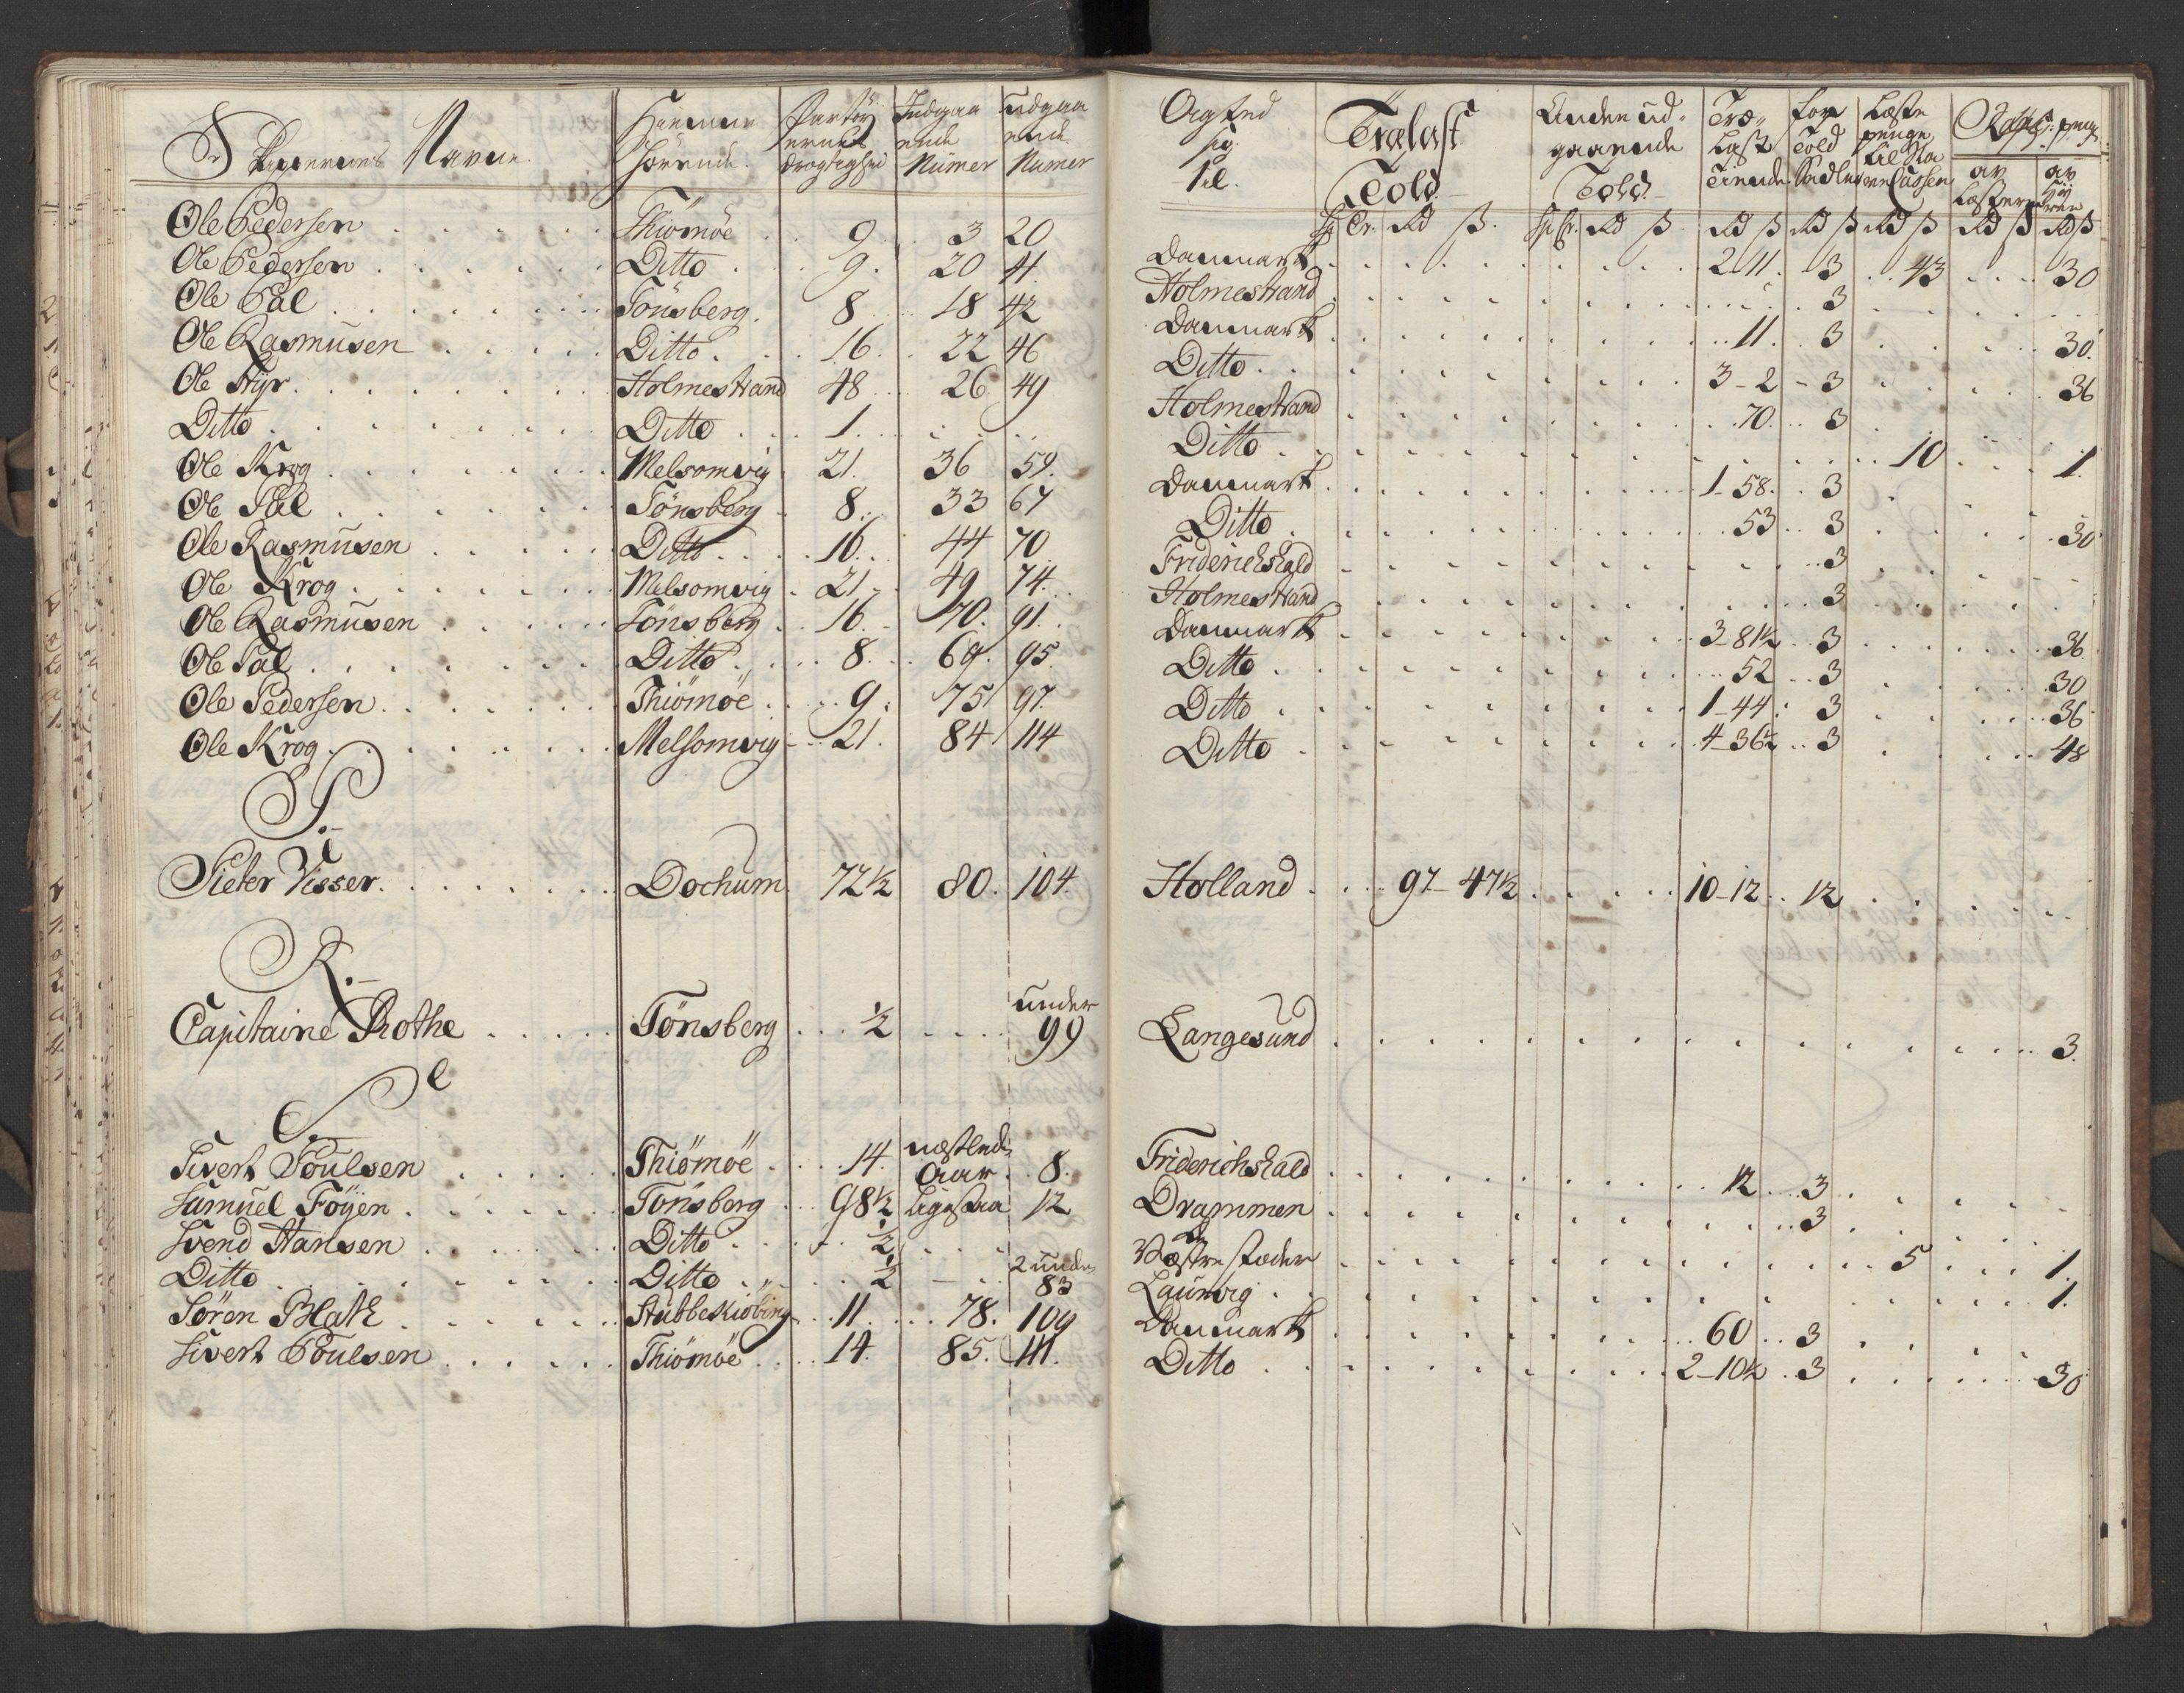 Skippernes Navne. Hiemme Hörende. Fartöyernes Drægtighed Indgaaende Numer Udgaaende Numer
Ole Pedersen Thiömöe 9 3 20
Ole Pedersen Ditto 9. 20 41.
Ole Pål Tönsberg. 8 18 42
Ole Rasmusen Ditto. 16. 22 46
Ole Styr. Holmestrand 48 26 49
Ditto Ditto 1.
Ole Krog Melsomvig 21. 36 59.
Ole Pål Tönsberg 8. 33 67
Ole Rasmusen Ditto 16. 44 70
Ole Krog Melsomvig 21 49 74.
Ole Rasmusen Tönsberg 16. 70. 91.
Ole Pål Ditto 8. 69. 95
Ole Pedersen Thiömöe 9. 75 97.
Ole Krog Melsomvig 21. 84 114
P.
Pieter Visser. Dochum 72½ 80. 104.
R.
Capitaine Rothe Tönsberg ½ under 99
S
Sivert Poulsen Thiömöe 14. næstled: Aar 8.
Samuel Föyen Tönsberg 98½ ligesaa 12
Svend Hansen Ditto ½
Ditto Ditto ½ 2 under 83
Sören Blatk Stubbekiöbing 11 78. 109
Sivert Poulsen Thiömöe 14. 85. 111.
Agtend sig til. Trælast Told Anden udgaaende Told Træ-Last Tiende for Told Sedler Læste penge til Sta Cassen av Læsterne av
Rd ß Rd ß Rd ß Rd ß Rd ß Rd ß Rd ß
Danmark 2 11. 3 43 30
Holmestrand 3
Danmark 11. 3 30.
Ditto 3-2 3 36
Holmestrand 70. 3
Ditto 10 1.
Danmark 1-58. 3
Ditto 53 3 30
Friderichshald 3
Holmestrand 3
Danmark 3-81½ 3 36
Ditto 52 3 30
Ditto 1-44. 3 36
Ditto 4-36½ 3 48
Holland 97-47½ 10-12 12
Langesund 3.
Friderichshald 12 3
Drammen 3
Westre stæder 5 1.
Laurvig 1.
Danmark 60 3
Ditto 2-10½ 3 30